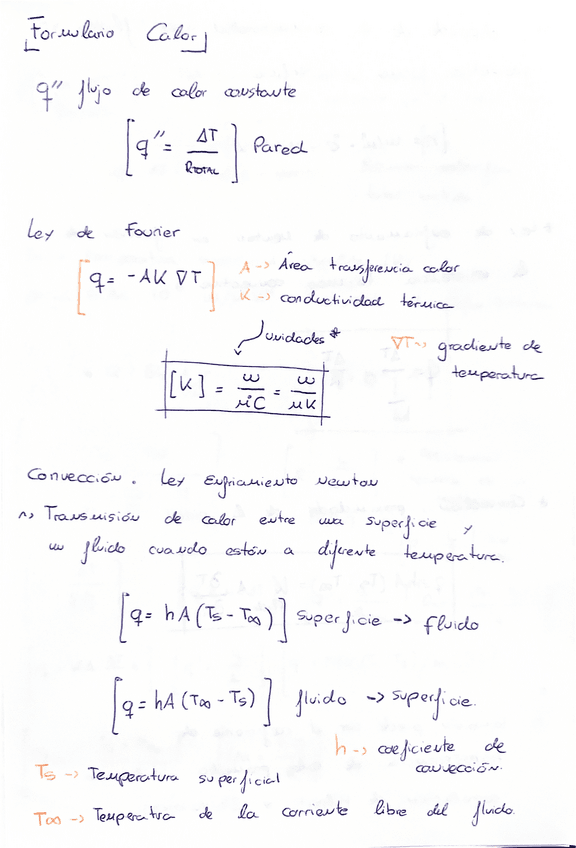 Formulario Calor
q'' flujo de calor constante
[q'' = ΔT / R_TOTAL] Pared
Ley de Fourier
[q = -AK ∇T] A -> Área transferencia calor
K -> conductividad térmica
unidades *
∇T -> gradiente de temperatura
[K] = w / m°C = w / mK
Convección. Ley Enfriamiento Newton
~> Transmisión de calor entre una superficie y
un fluido cuando están a diferente temperatura.
[q = hA (Ts - T∞)] superficie -> fluido
[q = hA (T∞ - Ts)] fluido -> superficie.
h -> coeficiente de convección.
Ts -> Temperatura superficial
T∞ -> Temperatura de la corriente libre del fluido.